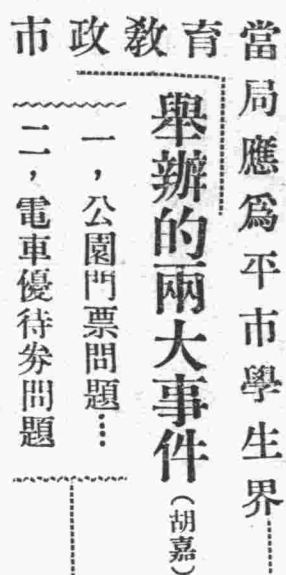 市政教育
當局應爲平市學生界
舉辦的兩大事件（胡嘉）
一，公園門票問題……
二，電車優待券問題